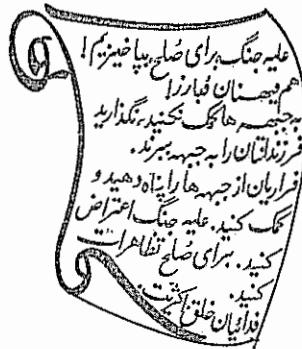 علیه جنگ، برای صُلح، بپا خیزیم!
هم‌میهنان مُبارز!
به جبهه‌ها کمک نکنید، نگذارید
فرزندانتان را به جبهه ببرند.
فراریان از جبهه‌ها را پناه دهید و
کمک کنید. علیه جنگ اعتراض
کنید. برای صُلح تظاهرات
کنید.
فدائیان خلق (اکثریت)